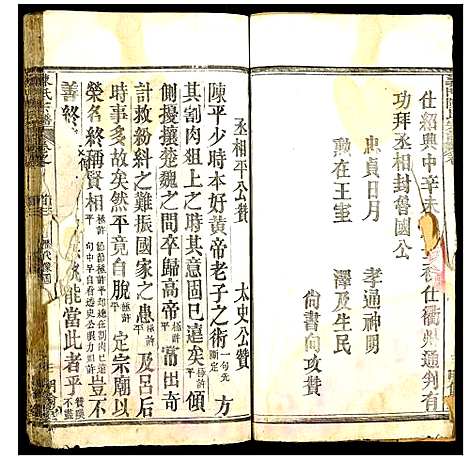 仕紹興中辛未
仕衢州通判有
功拜丞相封魯國公
忠貞日月　孝通神明
勳在王室　澤及生民
尚書向攻贊
丞相平公贊　太史公贊
陳平少時本好黃帝老子之術　方
其割肉俎上之時其意固已遠矣　傾
側擾攘楚魏之間卒歸高帝　常出奇
計救紛糾之難振國家之患　及呂后
時事多故矣然平竟自脫　定宗廟以
榮名終稱賢相　豈不
善終　能當此者乎
陳氏宗譜